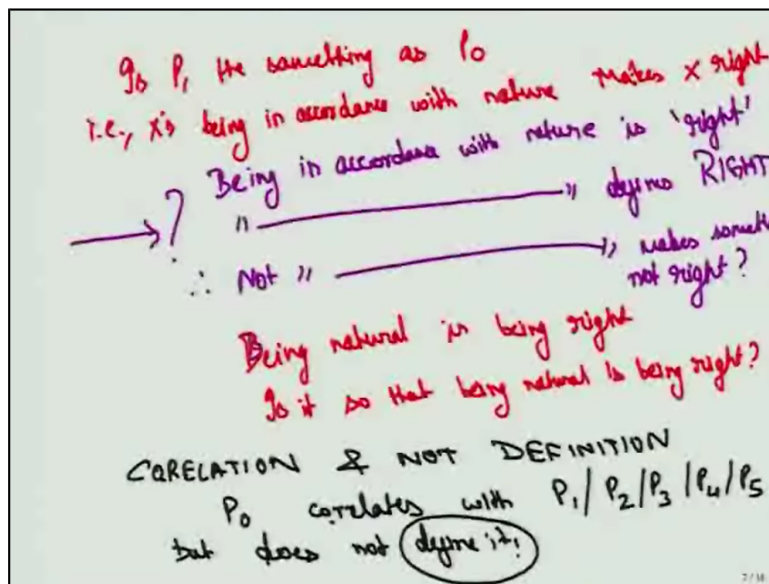 Is P1 the something as P0
i.e., x's being in accordance with nature makes x right
Being in accordance with nature is 'right'
? " ———— " defines RIGHT
∴ Not " ———— " makes somet
not right?
Being natural is being right
Is it so that being natural is being right?
CORELATION & NOT DEFINITION
P0 correlates with P1/P2/P3/P4/P5
but does not define it!